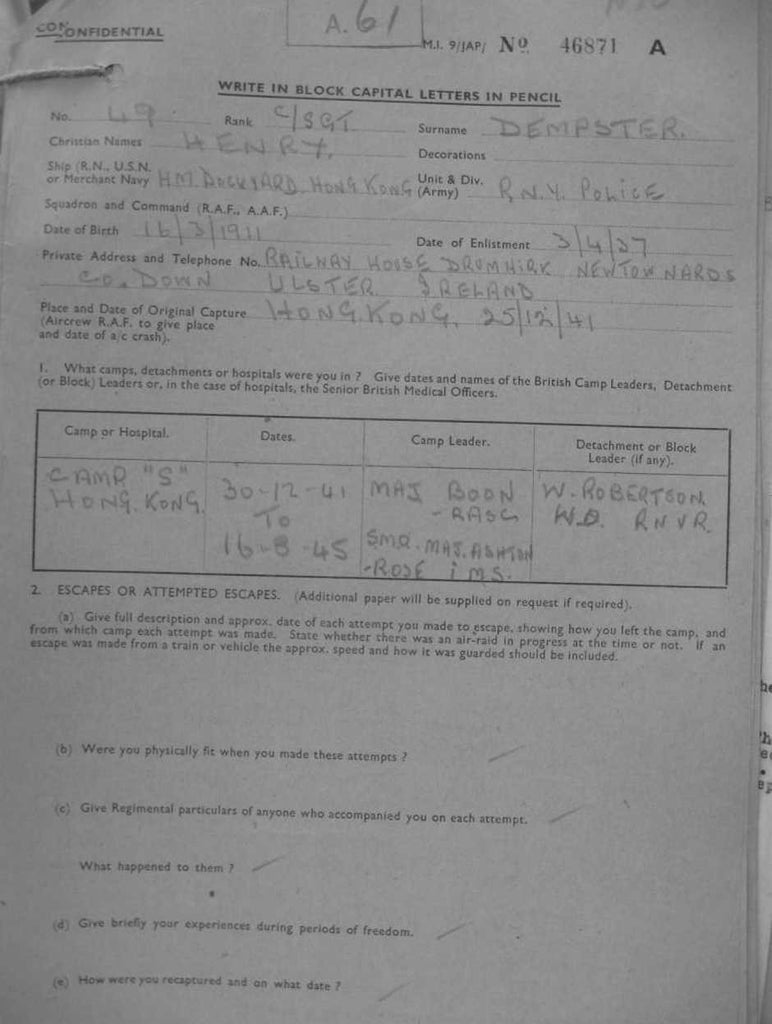 CONFIDENTIAL
A.61
M.I. 9/JAP/ No 46871 A
WRITE IN BLOCK CAPITAL LETTERS IN PENCIL
No. 49. Rank C/SGT Surname DEMPSTER.
Christian Names HENRY. Decorations
Ship (R.N., U.S.N. or Merchant Navy) H.M. DOCKYARD. HONG KONG Unit & Div. (Army) R.N.Y. POLICE
Squadron and Command (R.A.F., A.A.F.)
Date of Birth 16/3/1911 Date of Enlistment 3/4/37
Private Address and Telephone No. RAILWAY HOUSE DRUMHIRK NEWTOWNARDS
CO. DOWN ULSTER IRELAND
Place and Date of Original Capture HONG. KONG. 25/12/41
(Aircrew R.A.F. to give place
and date of a/c crash).
1. What camps, detachments or hospitals were you in ? Give dates and names of the British Camp Leaders, Detachment
(or Block) Leaders or, in the case of hospitals, the Senior British Medical Officers.
Camp or Hospital. Dates. Camp Leader. Detachment or Block Leader (if any).
CAMP "S" 30-12-41 MAJ BOON W. ROBERTSON
HONG. KONG. TO - RASC W.O. RNVR.
16-8-45 SMO. MAJ. ASHTON
-ROSE IMS.
2. ESCAPES OR ATTEMPTED ESCAPES. (Additional paper will be supplied on request if required).
(a) Give full description and approx. date of each attempt you made to escape, showing how you left the camp, and
from which camp each attempt was made. State whether there was an air-raid in progress at the time or not. If an
escape was made from a train or vehicle the approx. speed and how it was guarded should be included.
(b) Were you physically fit when you made these attempts ?
(c) Give Regimental particulars of anyone who accompanied you on each attempt.
What happened to them ?
(d) Give briefly your experiences during periods of freedom.
(e) How were you recaptured and on what date ?